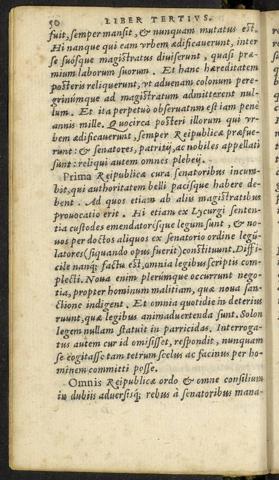 50 LIBER TERTIVS.
fuit, semper mansit, & nunquam mutatus est.
Hi nanque qui eam vrbem ædificauerunt, inter
se suósque magistratus diuiserunt, quasi præ-
mium laborum suorum. Et hanc hæreditatem
posteris reliquerunt, vt aduenam colonum pere-
grinúmque ad magistratum admitterent nul-
lum. Et ita perpetuò obseruatum est iam penè
annis mille. Quocirca posteri illorum qui vr-
bem ædificauerunt, semper Reipublicæ præfue-
runt: & senatores, patritij, ac nobiles appellati
sunt: reliqui autem omnes plebeij.
Prima Reipublicæ cura senatoribus incum-
bit, qui authoritatem belli pacisque habere de-
bent. Ad quos etiam ab aliis magistratibus
prouocatio erit. Hi etiam ex Lycurgi senten-
tia custodes emendatorésque legum sunt, & no-
uos per doctos aliquos ex senatorio ordine legû-
latores (siquando opus fuerit) constituunt. Diffi-
cile nanq; factu est, omnia legibus scriptis com-
plecti. Noua enim plerúmque occurrunt nego-
tia, propter hominum malitiam, quæ noua san-
ctione indigent. Et omnia quotidie in deterius
ruunt, quæ legibus animaduertenda sunt. Solon
legem nullam statuit in parricidas. Interroga-
tus autem cur id omisisset, respondit, nunquam
se cogitasse tam tetrum scelus ac facinus per ho-
minem committi posse.
Omnis Reipublicæ ordo & omne consilium
in dubiis aduersisq; rebus à senatoribus mana-